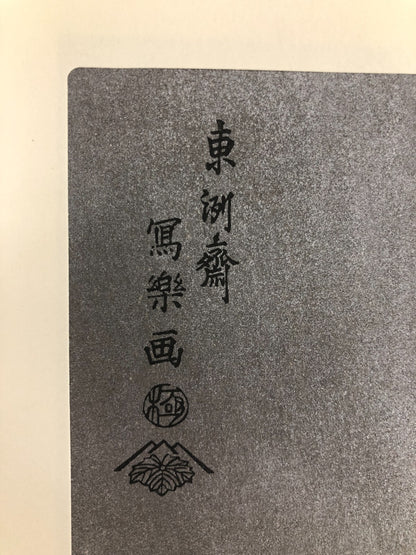 東洲斎
寫樂画
極